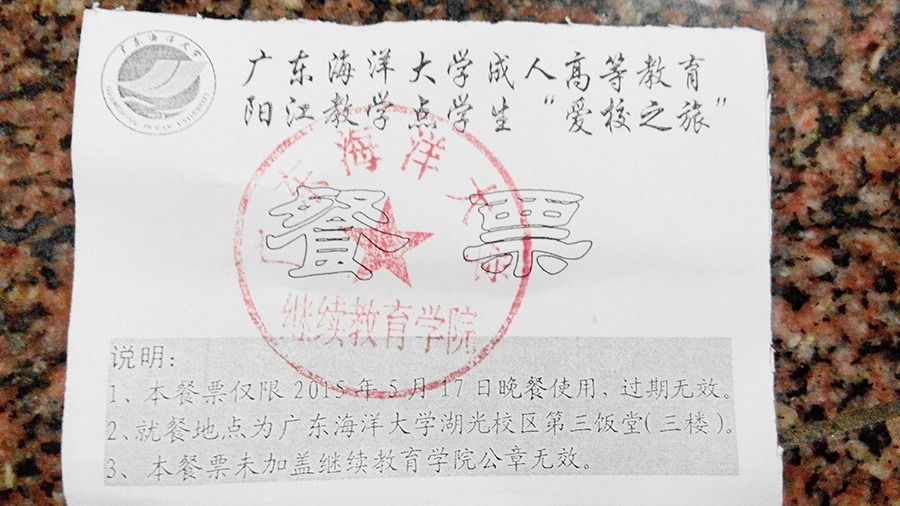 广东海洋大学
GUANGDONG OCEAN UNIVERSITY
广东海洋大学成人高等教育
阳江教学点学生“爱校之旅”
广东海洋大学
餐票
继续教育学院
说明：
1、本餐票仅限 2015 年 5 月 17 日晚餐使用，过期无效。
2、就餐地点为广东海洋大学湖光校区第三饭堂（三楼）。
3、本餐票未加盖继续教育学院公章无效。